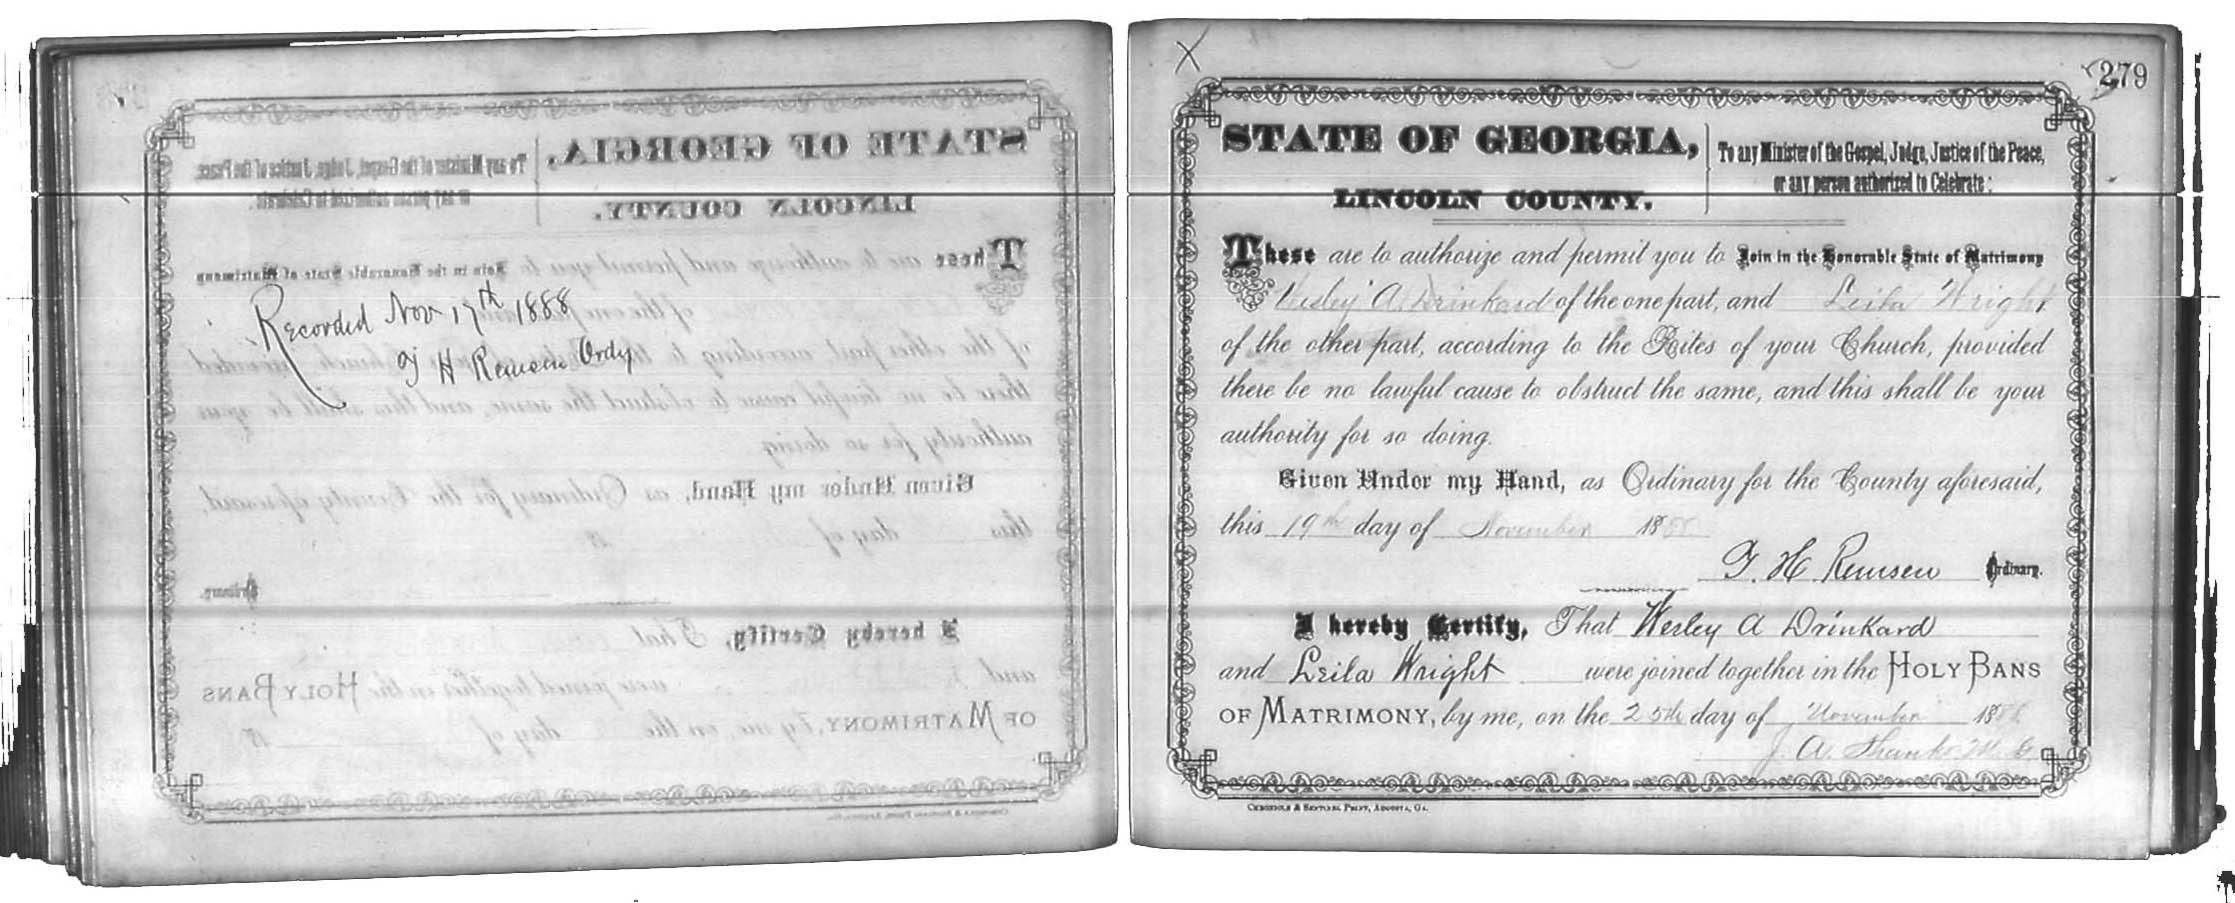 Recorded Nov 17th 1888
T H Remsen Ordy
279
STATE OF GEORGIA,
LINCOLN COUNTY.
To any Minister of the Gospel, Judge, Justice of the Peace,
or any person authorized to Celebrate:
These are to authorize and permit you to Join in the Honorable State of Matrimony
Wesley A Drinkard of the one part, and Leila Wright
of the other part, according to the Rites of your Church, provided
there be no lawful cause to obstruct the same, and this shall be your
authority for so doing.
Given Under my Hand, as Ordinary for the County aforesaid,
this 19th day of November 1888
T. H. Remsen Ordinary.
I hereby Certify, That Wesley A Drinkard
and Leila Wright were joined together in the HOLY BANS
OF MATRIMONY, by me, on the 25th day of November 188
J. A. M. G.
CHRONICLE & SENTINEL PRINT, AUGUSTA, GA.